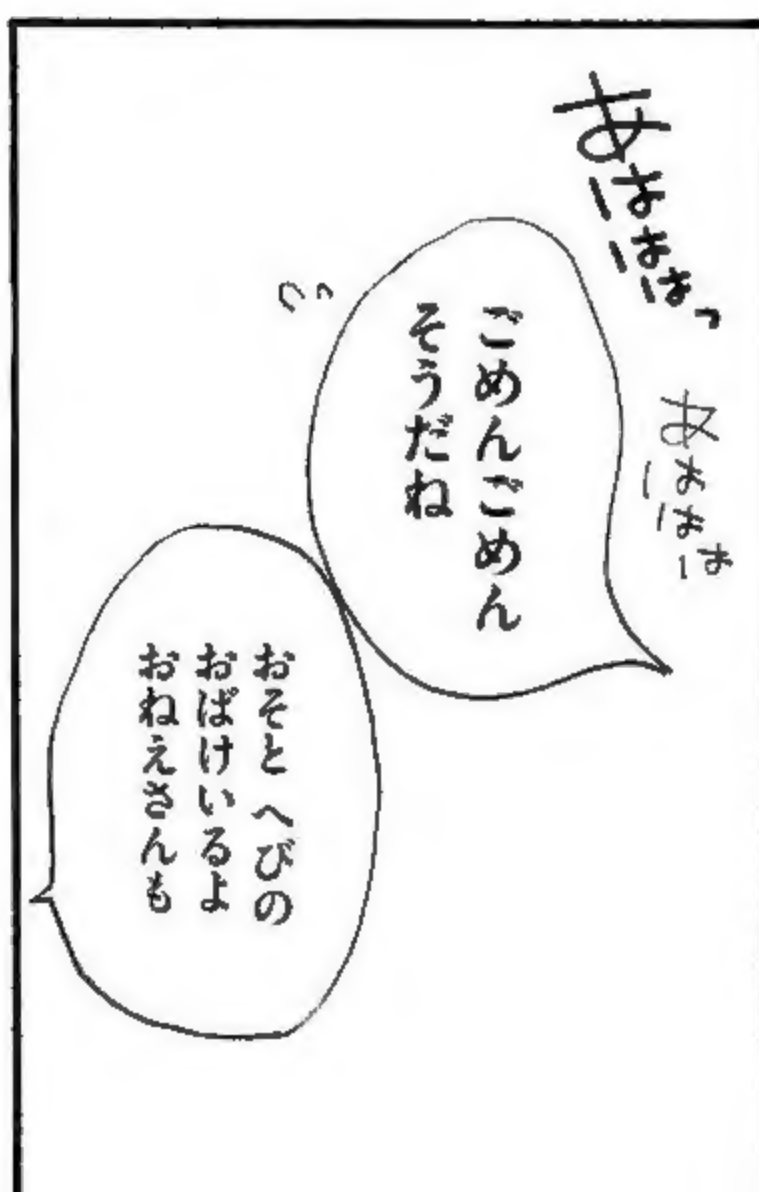 あはははっ
あははは
ごめんごめん
そうだね
おそと へびの
おばけいるよ
おねえさんも